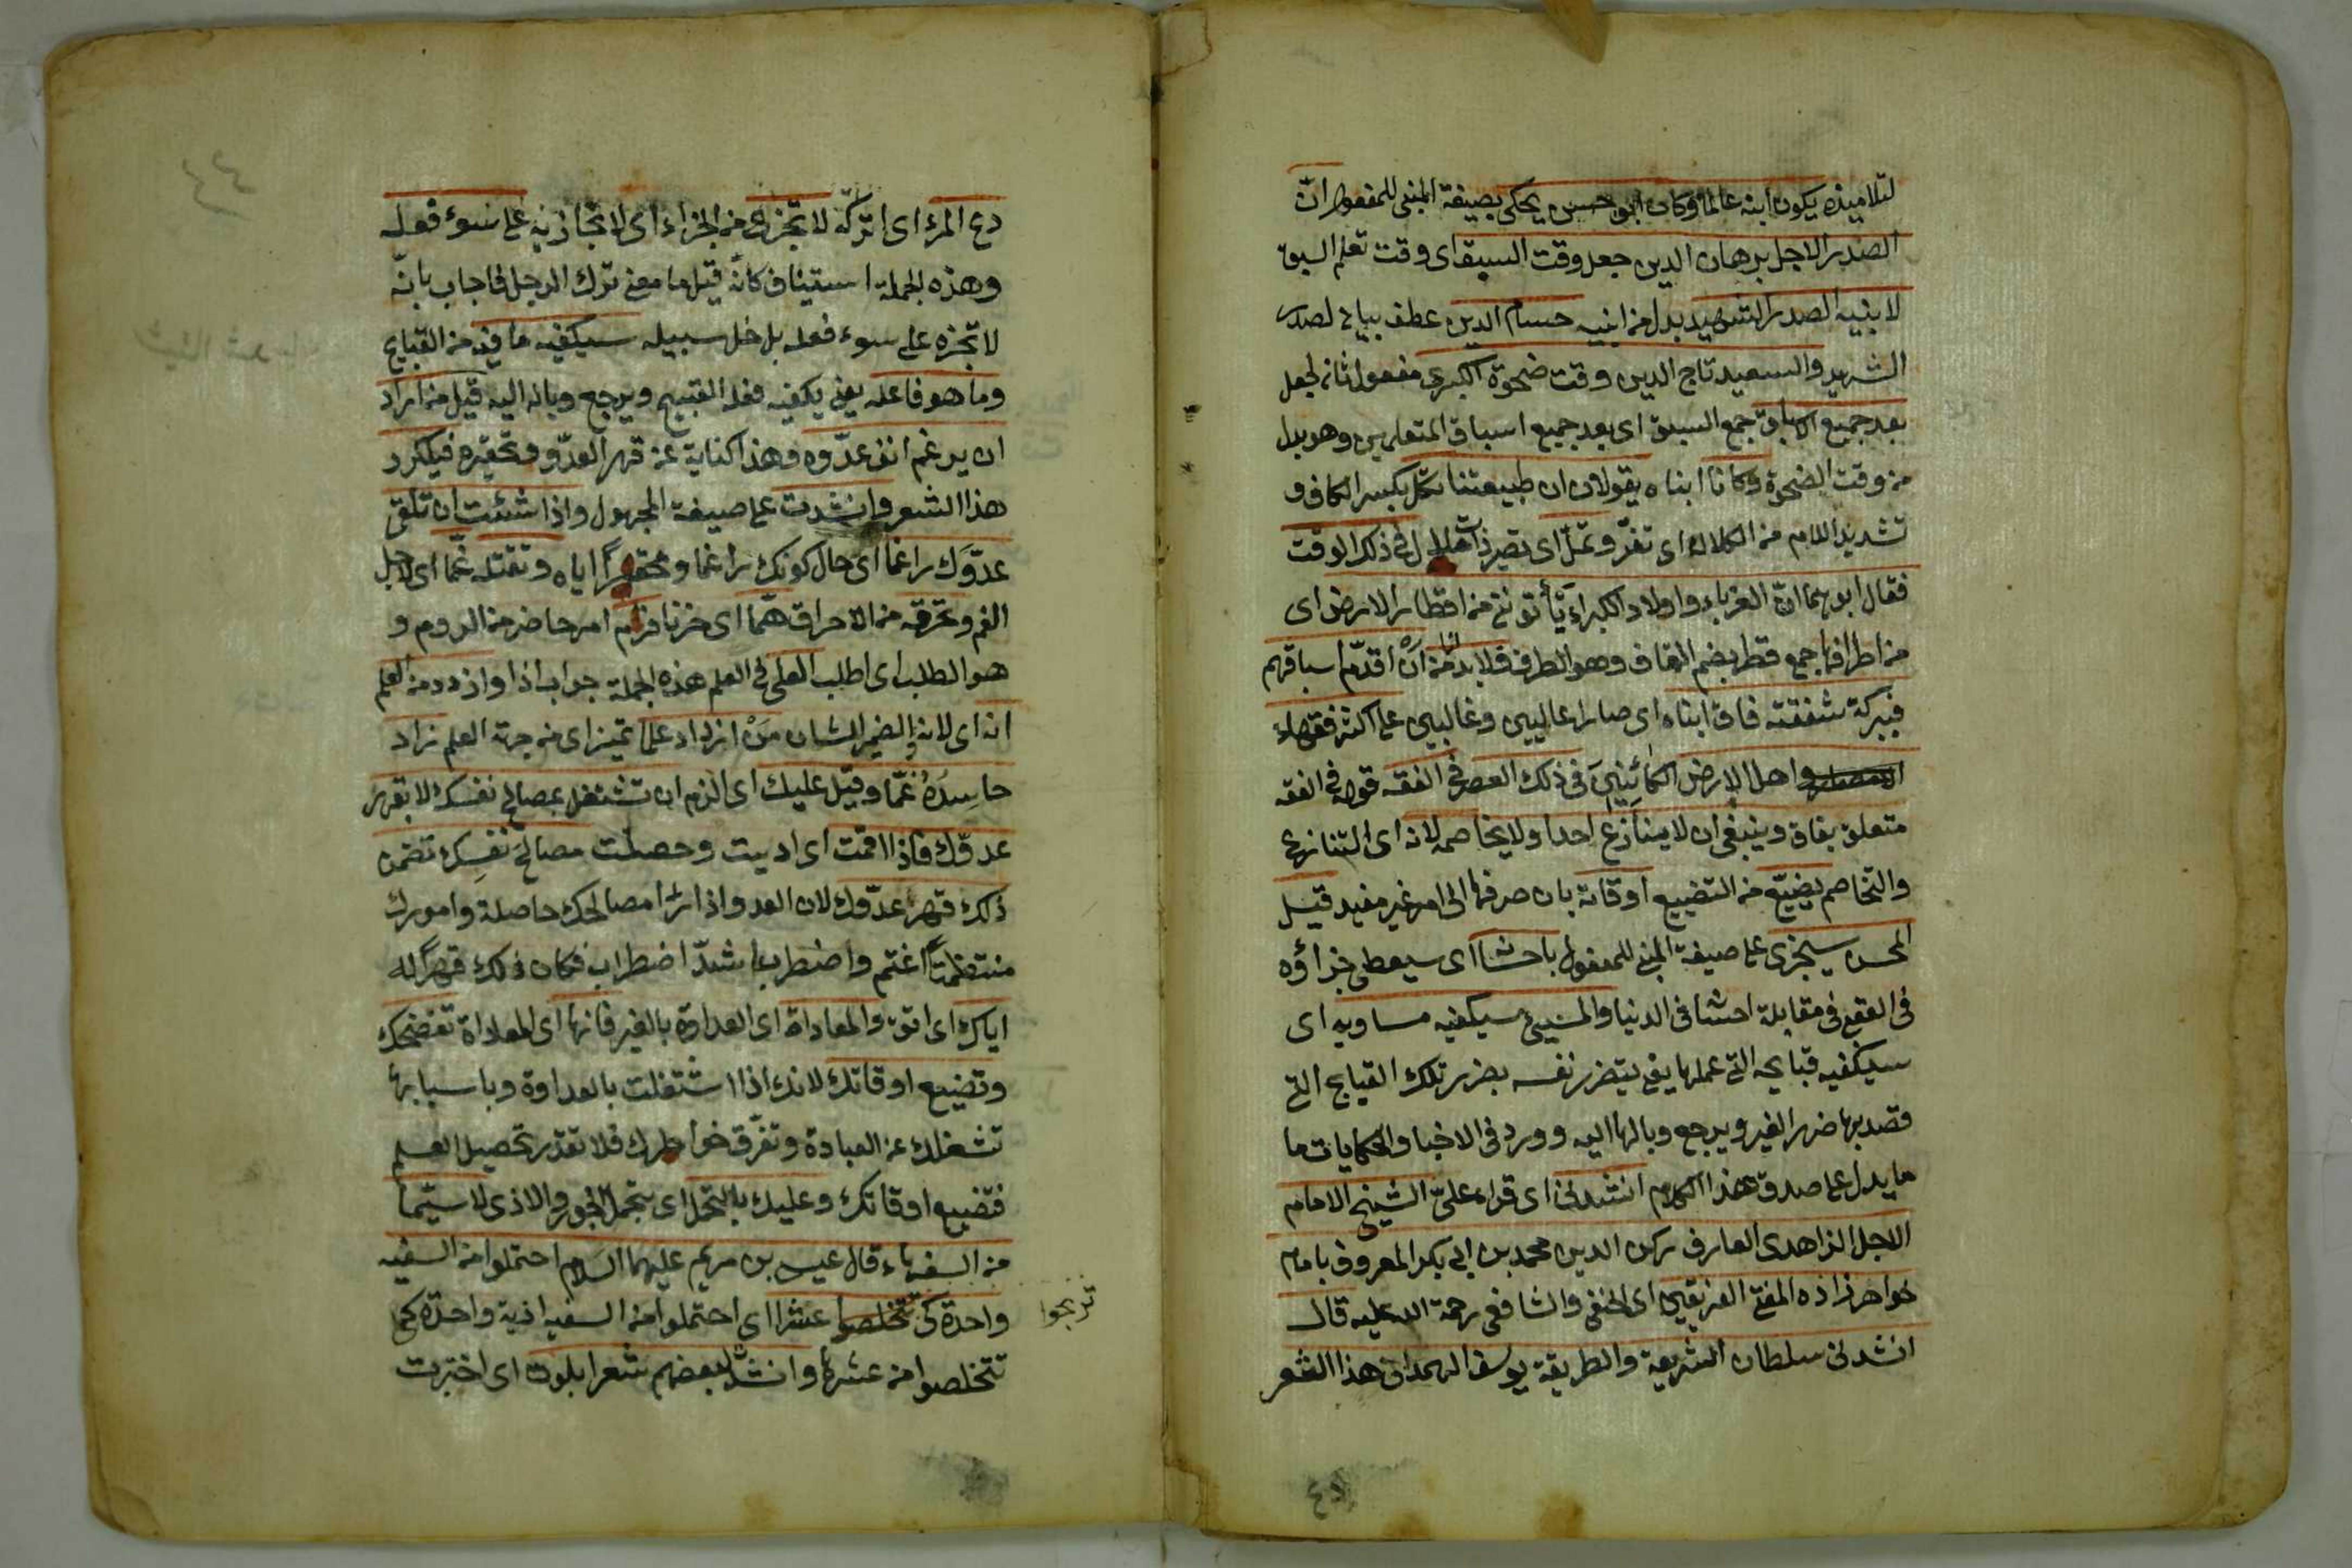 لتلاميذه يكون ابنه عالما وكان ابو حسن يحكى بصيغة المبنى للمفعول ان
الصدر الاجل برهان الدين جعل وقت السبق اى وقت تعلم السبق
لابنيه الصدر الشهيد بدل من ابنيه حسام الدين عطف بيان لصدر
الشهيد والسعيد تاج الدين وقت ضحوة الكبرى مفعول ثان لجعل
بعد جميع الاسباق جمع السبق اى بعد جميع اسباق المتعلمين وهو بدل
من وقت الضحوة وكانا ابناه يقولان ان طبيعتنا تكل بكسر الكاف و
تشديد اللام من الكلالة اى تفتر وتمل اى تصير ذات ملال فى ذلك الوقت
فقال ابوهما ان الغرباء واولاد الكبراء يأتوننى من اقطار الارض اى
من اطرافها جمع قطر بضم القاف وهو الطرف فلا بد من ان اقدم اسباقهم
فببركة شفقته فاق ابناه اى صارا عاليين وغالبين على اكثر فقهاء
واهل الارض الكائنين فى ذلك العصر فى الفقه قوله فى الفقه
متعلق بفاق وينبغى ان لا ينازع احدا ولا يخاصمه لانه اى التنازع
والتخاصم يضيع من التضييع اوقاته بان صرفها الى امر غير مفيد قيل
المحسن سيجزى على صيغة المبنى للمفعول باحسانه اى سيعطى جزاؤه
فى مقابلة احسانه فى الدنيا والمسيئ سيكفيه مساويه اى
سيكفيه قبايحه التى عملها يعنى يتضرر نفسه بضرر تلك القبايح التى
قصد بها ضرر الغير ويرجع وبالها اليه وورد فى الاخبار والحكايات ما
ما يدل على صدق هذا الكلام انشدنى اى قراء على الشيخ الامام
الاجل الزاهدى العارف ركن الدين محمد بن ابى بكر المعروف بامام
خواهر زاده المفتى الفريقين اى الحنفى والشافعى رحمة الله عليه قال
انشدنى سلطان الشريعة والطريقة يوسف الهمدانى هذا الشعر
دع المرء اى اتركه لا تجزه من الجزاء اى لا تجازيه على سوء فعله
وهذه الجملة استيناف كانه قيل ما معنى ترك الرجل فاجاب بانه
لا تجزه على سوء فعله بل خل سبيله سيكفيه ما فيه من القبايح
وما هو فاعله يعنى يكفيه فعله القبيح ويرجع وباله اليه قيل من اراد
ان يرغم انف عدوه وهذا كناية عن قهر العدو وتحقيره فليكرر
هذا الشعر وانشدت على صيغة المجهول واذا شئت ان تلقى
عدوك راغما اى حال كونك راغما ومحقرا اياه وتقتله غما اى لاجل
الغم وتحرقه من الاحراق هما اى حزنا فرم امر حاضر من الروم و
هو الطلب اى اطلب العلى فى العلم هذه الجملة جواب اذا وازدد من العلم
انه اى لانه والضمير للشان من ازداد علما تميز اى من جهة العلم زاد
حاسده غما وقيل عليك اى الزم ان تشتغل بمصالح نفسك لا بقهر
عدوك فاذا اقمت اى اديت وحصلت مصالح نفسك تضمن
ذلك قهر عدوك لان العدو اذا رأ مصالحك حاصلة وامورك
منتظمة اغتم واضطرب اشد اضطراب فكان ذلك قهرا له
اياك اى اتق والمعاداة اى العداوة بالغير فانها اى المعاداة تفضحك
وتضيع اوقاتك لانك اذا اشتغلت بالعداوة وباسبابها
تشغلك عن العبادة وتفرق خواطرك فلا تقدر تحصيل العلم
فتضيع اوقاتك وعليك بالتحمل اى بتحمل الجور والاذى لا سيما
من السفهاء قال عيسى بن مريم عليهما السلام احتملوا من السفيه
واحدة كى تتخلصوا عشرا اى احتملوا من السفيه اذية واحدة كى
تربحوا
تتخلصوا من عشرها وانشد لبعضهم شعرا بلوت اى اختبرت